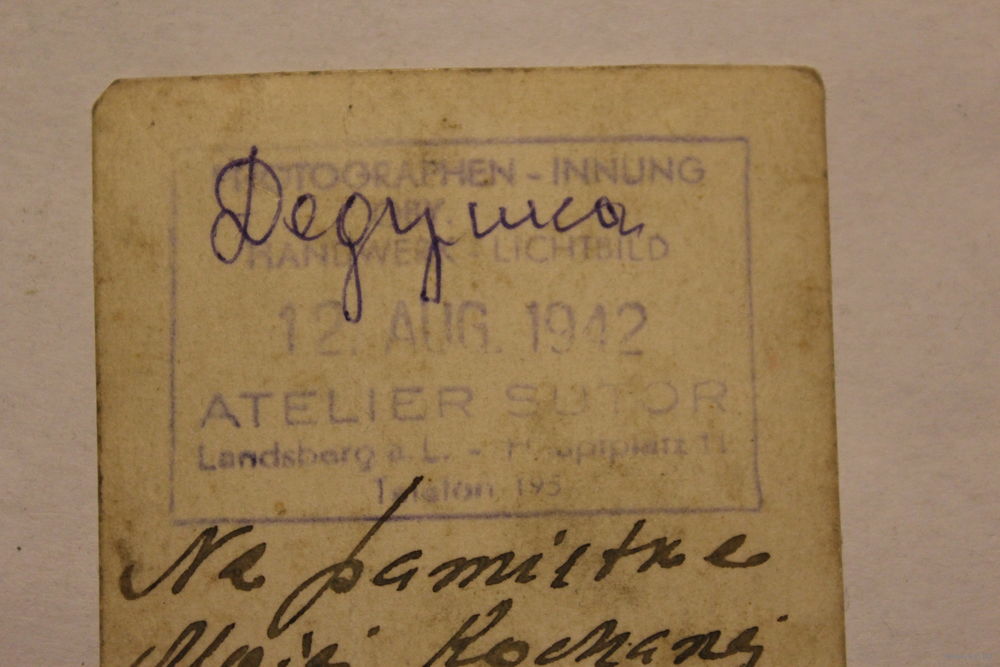 Дедушка
PHOTOGRAPHEN - INNUNG
HANDWERK LICHTBILD
12. AUG. 1942
ATELIER SUTOR
Landsberg a. L. - Hauptplatz 11
Telefon 195
Na pamiątke
Moiej Kochanej